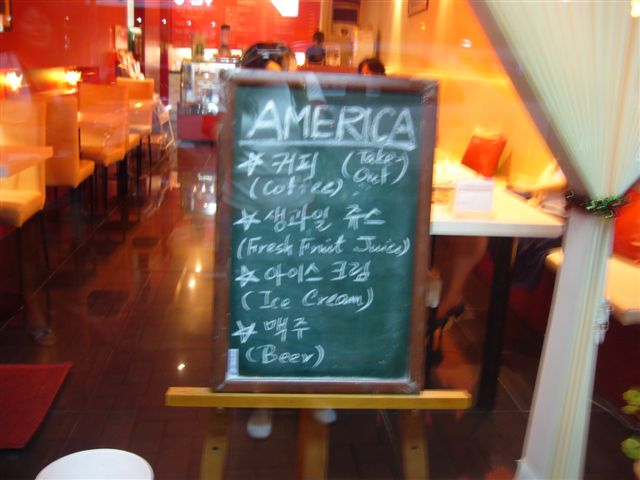 AMERICA
☆ 커피 (Take-Out)
(Coffee)
☆ 생과일 쥬스
(Fresh Fruit Juice)
☆ 아이스크림
(Ice Cream)
☆ 맥주
(Beer)